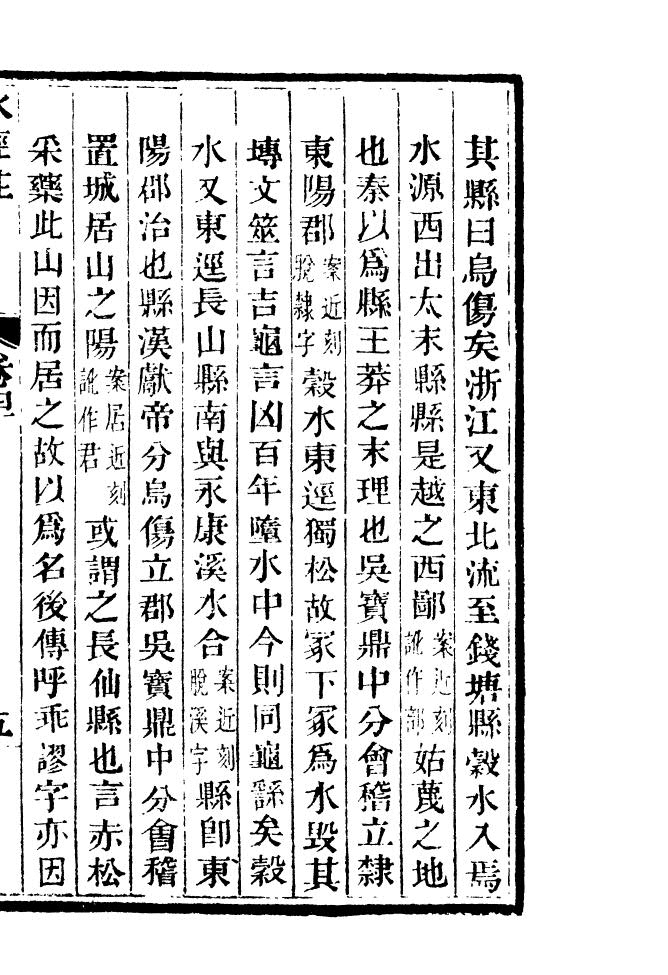 其縣曰烏傷矣浙江又東北流至錢塘縣穀水入焉
水源西出太末縣縣是越之西鄙案近刻訛作部姑蔑之地
也秦以爲縣王莽之末理也吳寶鼎中分會稽立隸
東陽郡案近刻脫隸字穀水東逕獨松故冢下冢爲水毀其
塼文筮言吉龜言凶百年墮水中今則同龜繇矣穀
水又東逕長山縣南與永康溪水合案近刻脫溪字縣卽東
陽郡治也縣漢獻帝分烏傷立郡吳寶鼎中分會稽
置城居山之陽案居近刻訛作君或謂之長仙縣也言赤松
采藥此山因而居之故以爲名後傳呼乖謬字亦因
水經注
卷四
五